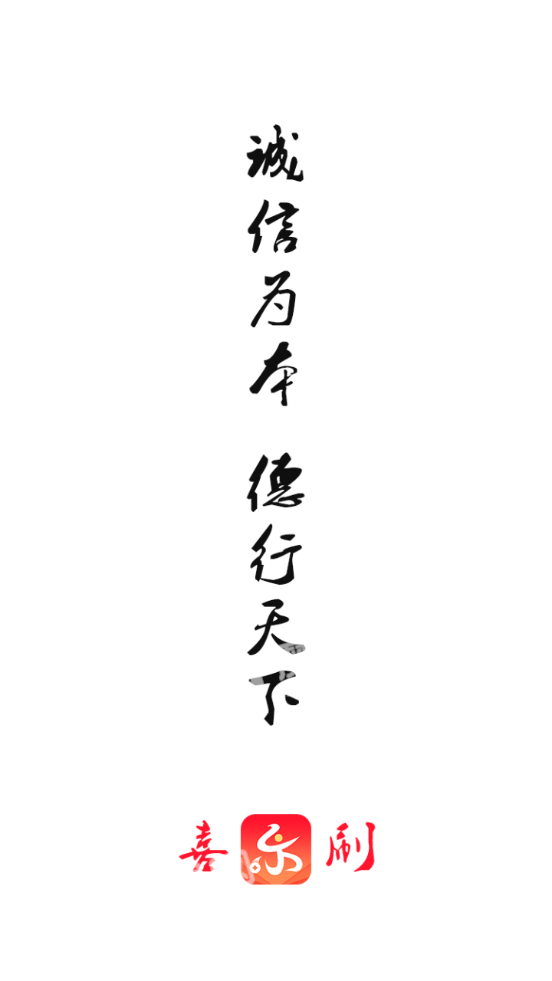 诚信为本
德行天下
喜乐刷